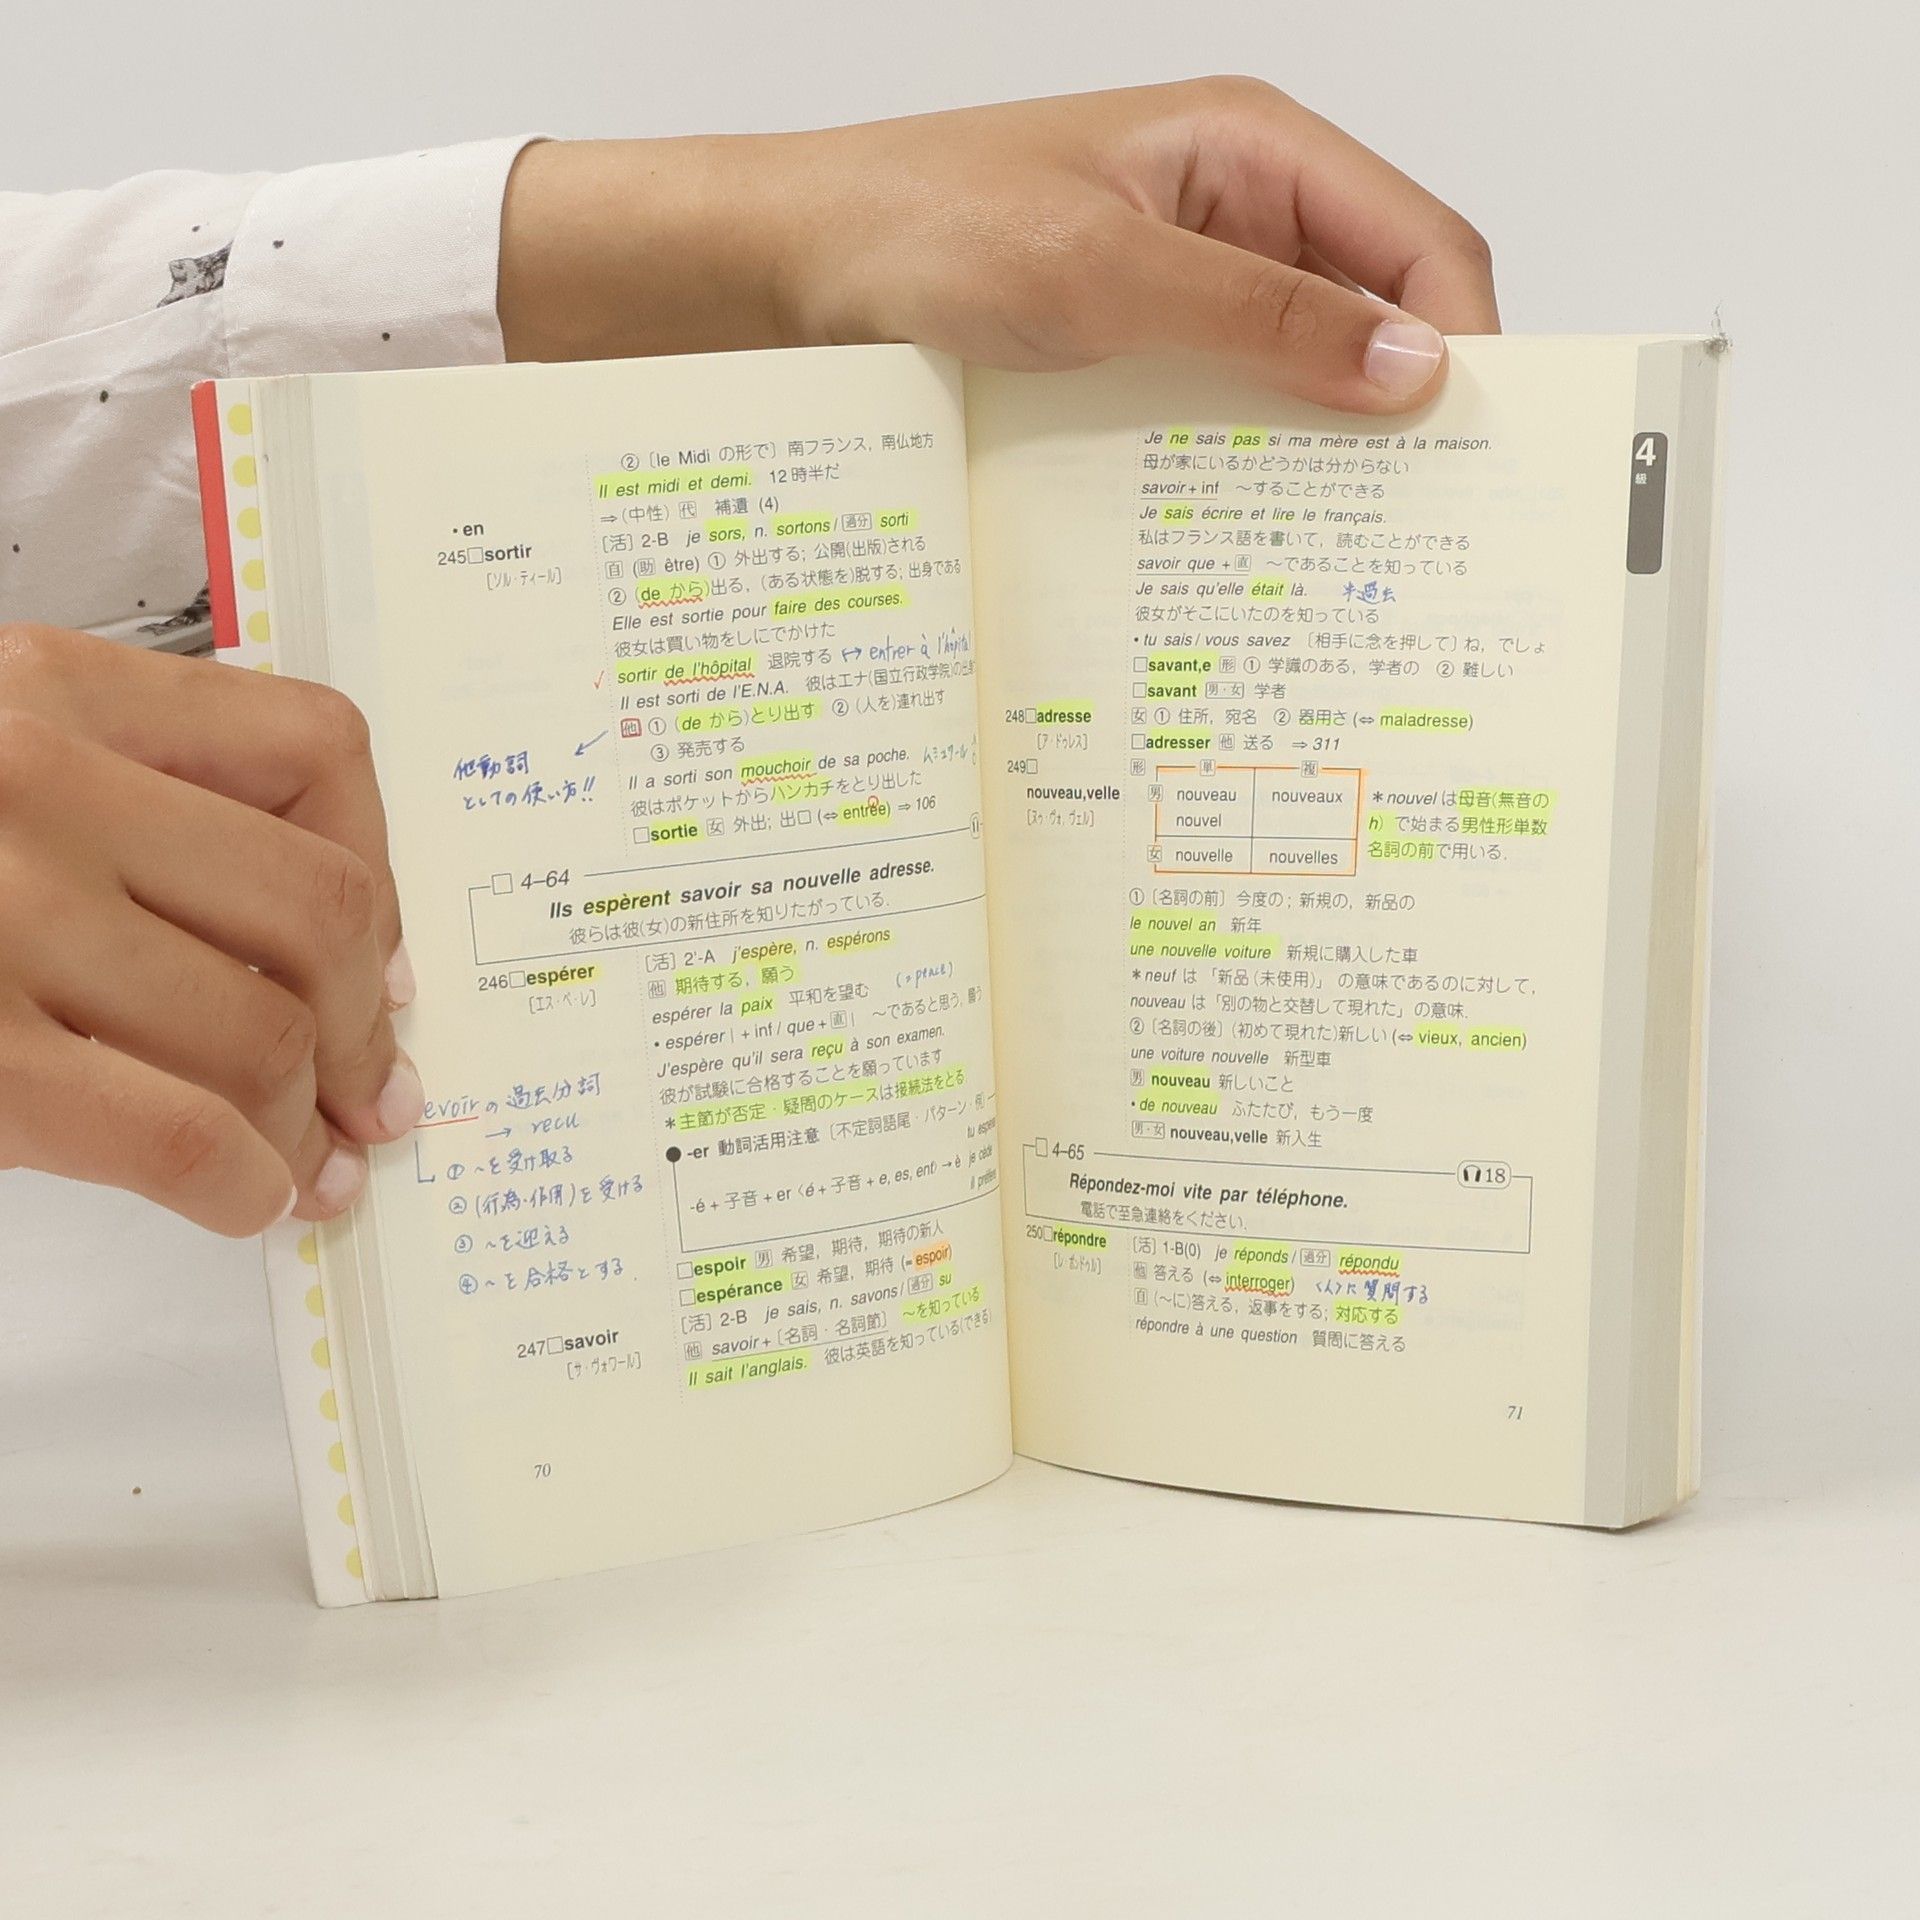 ② 〔le Midi の形で〕 南フランス, 南仏地方
Il est midi et demi. 12時半だ
・en ⇒ (中性) 代 補遺 (4)
245□sortir [活] 2-B je sors, n. sortons / 過分 sorti
[ソル・ティール] 自 (助 être) ① 外出する; 公開(出版)される
② (de から)出る, (ある状態を)脱する; 出身である
Elle est sortie pour faire des courses.
彼女は買い物をしにでかけた
✓ sortir de l'hôpital 退院する ↔ entrer à l'hôpital
Il est sorti de l'E.N.A. 彼はエナ(国立行政学院)の出身
他 ① (de から)とり出す ② (人を)連れ出す
③ 発売する
他動詞
としての使い方!!
Il a sorti son mouchoir de sa poche. ムミュワール
彼はポケットからハンカチをとり出した
□sortie 女 外出; 出口 (⇔ entrée) ⇒ 106
□ 4–64
Ils espèrent savoir sa nouvelle adresse.
彼らは彼(女)の新住所を知りたがっている.
246□espérer [活] 2'-A j'espère, n. espérons
[エス・ペ・レ] 他 期待する, 願う
espérer la paix 平和を望む (=peace)
・espérer | + inf / que + 直 | 〜であると思う, 願う
J'espère qu'il sera reçu à son examen.
彼が試験に合格することを願っています
＊主節が否定・疑問のケースは接続法をとる
evoir の過去分詞
→ recu
① 〜を受け取る
② (行為・作用)を受ける
③ 〜を迎える
④ 〜を合格とする.
●-er 動詞活用注意 〔不定詞語尾・パターン・例〕
-é + 子音 + er 〈é + 子音 + e, es, ent〉 → è je cède
□espoir 男 希望, 期待, 期待の新人
□espérance 女 希望, 期待 (= espoir)
247□savoir [活] 2-B je sais, n. savons / 過分 su
[サ・ヴォワール] 他 savoir + 〔名詞・名詞節〕 〜を知っている
Il sait l'anglais. 彼は英語を知っている(できる)
70
Je ne sais pas si ma mère est à la maison.
母が家にいるかどうかは分からない
savoir + inf 〜することができる
Je sais écrire et lire le français.
私はフランス語を書いて, 読むことができる
savoir que + 直 〜であることを知っている
Je sais qu'elle était là. 半過去
彼女がそこにいたのを知っている
・tu sais / vous savez 〔相手に念を押して〕ね, でしょ
□savant,e 形 ① 学識のある, 学者の ② 難しい
□savant 男・女 学者
248□adresse 女 ① 住所, 宛名 ② 器用さ (⇔ maladresse)
[ア・ドゥレス] □adresser 他 送る ⇒ 311
249□ 形 単 複
nouveau,velle 男 nouveau nouveaux
[ヌゥ・ヴォ, ヴェル] nouvel
女 nouvelle nouvelles
＊nouvel は母音(無音の
h) で始まる男性形単数
名詞の前で用いる.
① 〔名詞の前〕 今度の; 新規の, 新品の
le nouvel an 新年
une nouvelle voiture 新規に購入した車
＊neuf は 「新品 (未使用)」 の意味であるのに対して,
nouveau は「別の物と交替して現れた」の意味.
② 〔名詞の後〕 (初めて現れた)新しい (⇔ vieux, ancien)
une voiture nouvelle 新型車
男 nouveau 新しいこと
・de nouveau ふたたび, もう一度
男・女 nouveau,velle 新入生
□ 4–65 18
Répondez-moi vite par téléphone.
電話で至急連絡をください.
250□répondre [活] 1-B(0) je réponds / 過分 répondu
[レ・ポンドゥル] 他 答える (⇔ interroger) 〈人〉に質問する
自 (〜に)答える, 返事をする; 対応する
répondre à une question 質問に答える
71
4
級